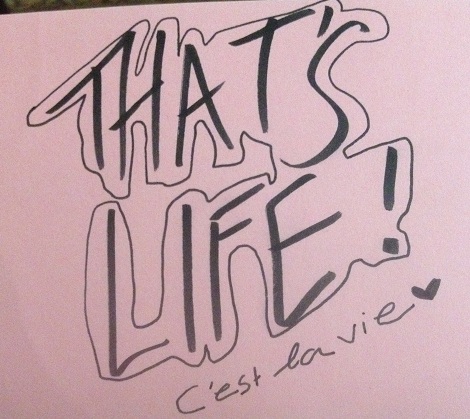 THAT'S
LIFE!
C'est la vie ♥